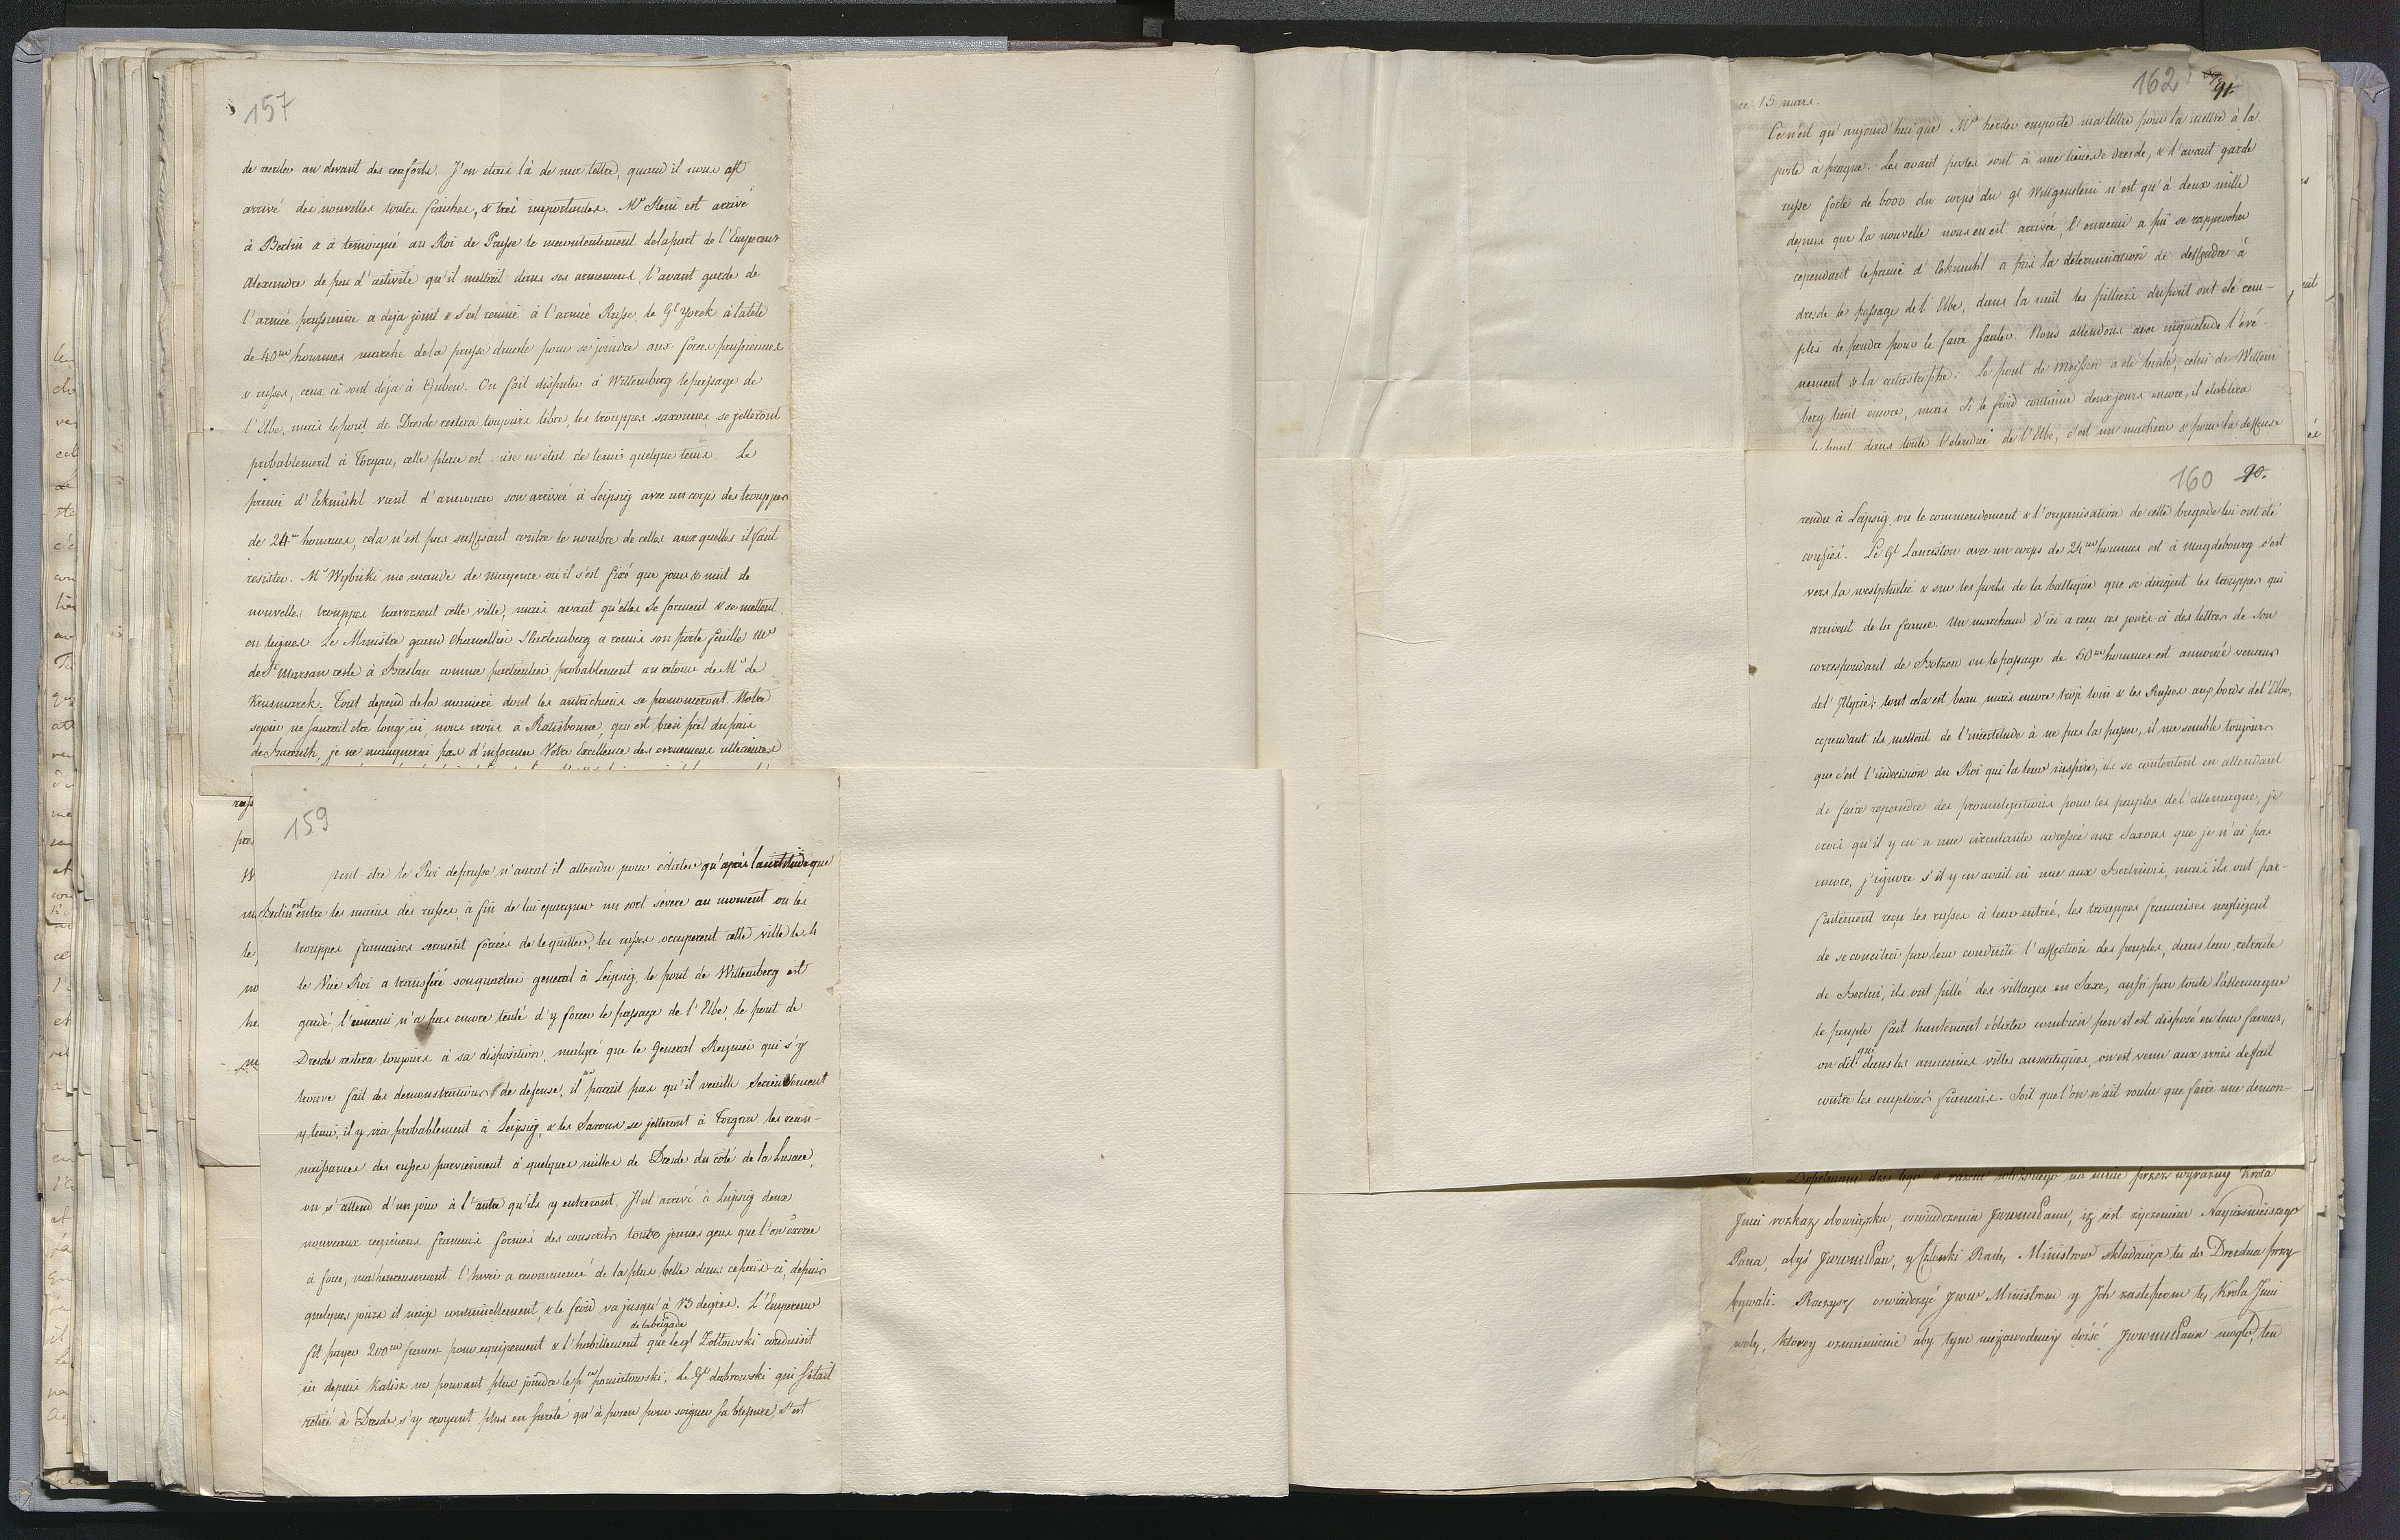 157
de reculer au devant des renforts. J'en etais là de ma lettre, quand il nous est
arrivé des nouvelles toutes fraiches, & trés importantes. Mr Stein est arrivé
à Berlin & à temoigné au Roi de Prusse le mecontentement delapart de l'Empereur
Alexandre de peu d'activité qu'il mettait dans ses armemens, l'avant garde de
l'armée prussienne a deja joint & s'est reunie à l'armée Russe, le Gl Yorck à latete
de 40m hommes marche dela prusse ducale pour se joindre aux forces prussiennes
& russes, ceux ci sont déja à Guben. On fait disputer à Wittemberg lepassage de
l'Elbe, mais lepont de Dresde restera toujours libre, les trouppes saxonnes se jetteront
probablement à Torgau, cette place est mise en état de tenir quelque tems. Le
prince d'Eckmühl vient d'annoncer son arrivée à Leipsig avec un corps des trouppes
de 24m hommes, cela n'est pas suffisant contre le nombre de celles aux quelles il faut
resister. Mr Wybicki me mande de mayence où il s'est fixé que jour & nuit de
nouvelles trouppes traversent cette ville, mais avant qu'elles se forment & se mettent
en lignes. Le Ministre grand Chancellier Hardemberg a remis son porte feuille Mr
de St Marsan reste à Breslau comme particulier, probablement au retour de Mr de
Krusmarck. Tout depend dela maniere dont les autrichiens se prononceront. Notre
sejour ne saurait etre long ici, nous irons à Ratisbonne, qui est bien prêt du païs
de Bareuth, je ne manquerai pas d'informer Votre Excellence des evenemens ulterieurs
159
peut-etre le Roi deprusse n'aurat il attendu pour éclater qu'après la certitude que
Berlin est entre les mains des russes, à fin de lui epargner un sort sévere au moment où les
trouppes francaises seraient forcées de le quitter, les russes occuperent cette ville le 4
le Vice Roi a transferé son quartier general à Leipsig, le pont de Wittemberg est
gardé, l'ennemi n'a pas encore tenté d'y forcer le passage de l'Elbe, le pont de
Dresde restera toujours à sa disposition, malgré que le General Reynier qui s'y
trouve fait des demonstrations de defense, il ne parait pas qu'il veuille Serieusement
y tenir, il y ira probablement à Leipsig, & les Saxons se jetteront à Torgau. les recon-
naissances des russes parviennent à quelques milles de Dresde du coté de la Lusace,
on s'attend d'un jour à l'autre qu'ils y entreront. Il est arrivé à Leipsig deux
nouveaux regimens francais formés des conscrits touts jeunes gens que l'on exerce
à force, malheureusement l'hiver a recommencé de la plus belle dans cepaïs-ci, depuis
quelques jours il neige continuellement, & le froid va jusqu'à 13 degrés. L'Empereur
fit payer 200m francs pour equipement & l'habillement de la brigade que le gl Zoltowski conduisit
ici depuis Kalisz ne pouvant plus joindre le pce poniatowski, Le Gl dabrowski qui s'était
retiré à Dresde s'y croyant plus en sureté qu'à posen pour soigner sa blessure, s'est
162 91.
ce 15 mars.
Ce n'est qu'aujourd'hui que Mr herder emporte ma lettre pour la mettre à la
poste à prague. Les avant postes sont à une lieue de Dresde, & l'avant garde
russe forte de 6000 du corps du gl Wittgenstein n'est qu'à deux mille
depuis que la nouvelle nous en est arrivée, l'ennemi a pu se rapprocher
cependant le prince d'Eckmühl a pris la détermination de deffendre à
dresde le passage de l'Elbe, dans la nuit les pilliers dupont ont été rem-
plis de poudre pour le faire sauter. Nous attendons avec inquietude l'evé-
nement & la catastrophe. Le pont de Meissen a été brulé, celui de Wittem
berg tient encore, mais si le froid continue deux jours encore, il etablira
dans toute l'etendue de l'Elbe, c'est un malheur & pour la deffense
160 90.
rendu à Leipsig, ou le commendement & l'organisation de cette brigade lui ont été
confiés. Le Gl Lauriston avec un corps de 24m hommes est à Magdebourg c'est
vers la westphalie & sur les ports de la baltique que se dirigent les trouppes qui
arrivent de la france. Un marchand d'ici a reçu ces jours-ci des lettres de son
correspondant de Botzen ou le passage de 50m hommes est annoncé venans
de l'Illyrie; tout cela est beau mais encore trop loin & les Russes aux bords de l'Elbe,
cependant ils mettent de l'incertitude à ne pas la passer, il me semble toujours
que c'est l'indecision du Roi qui la leur inspire, ils se contentent en attendant
de faire repandre des promulgations pour les peuples de l'allemagne, je
crois qu'il y en a une circulante adressée aux Saxons que je n'ai pas
encore, j'ignore s'il y en avait eu une aux Berlinois, mais ils ont par-
faitement reçu les russes à leur entrée, les trouppes francaises negligent
de se concilier par leur conduite l'affection des peuples, dans leur retraite
de Berlin, ils ont pillé des villages en Saxe, aussi par toute l'allemagne
le peuple fait hautement éclater combien peu il est disposé en leur faveur,
on dit que dans les anciennes villes anseatiques, on est venu aux voies defait
contre les employés francais. Soit que l'on n'ait voulu que faire une demon-
Jmci rozkaz obowiązku, oswiadczenia JwwmuPanu, iż jest życzeniem Nayiaśnieiszego
Pana, abyś JwwmuPan, y Członki Rady Ministrow składaiąca tu do Drezdna przy-
bywali. Raczysz oswiadczyć Jww Ministrom y Ich zastępcom tę Krola Jmci
wolę, ktorey oznaymienie aby tym niezawodniey doiść JwwmuPanu mogło, ten